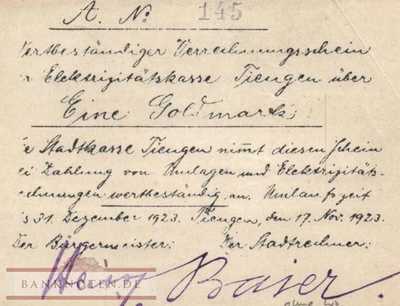 A. No 145
Wertbeständiger Verrechnungsschein
r Elektrizitätskasse Tiengen über
Eine Goldmark
ie Stadtkasse Tiengen nimmt diesen Schein
ei Zahlung von Umlagen und Elektrizitäts-
chnungen wertbeständig an. Umlaufszeit
s 31. Dezember 1923. Tiengen, den 17. Nov. 1923.
Der Bürgermeister: Der Stadtrechner:
Baier.
BANKNOTEN.DE